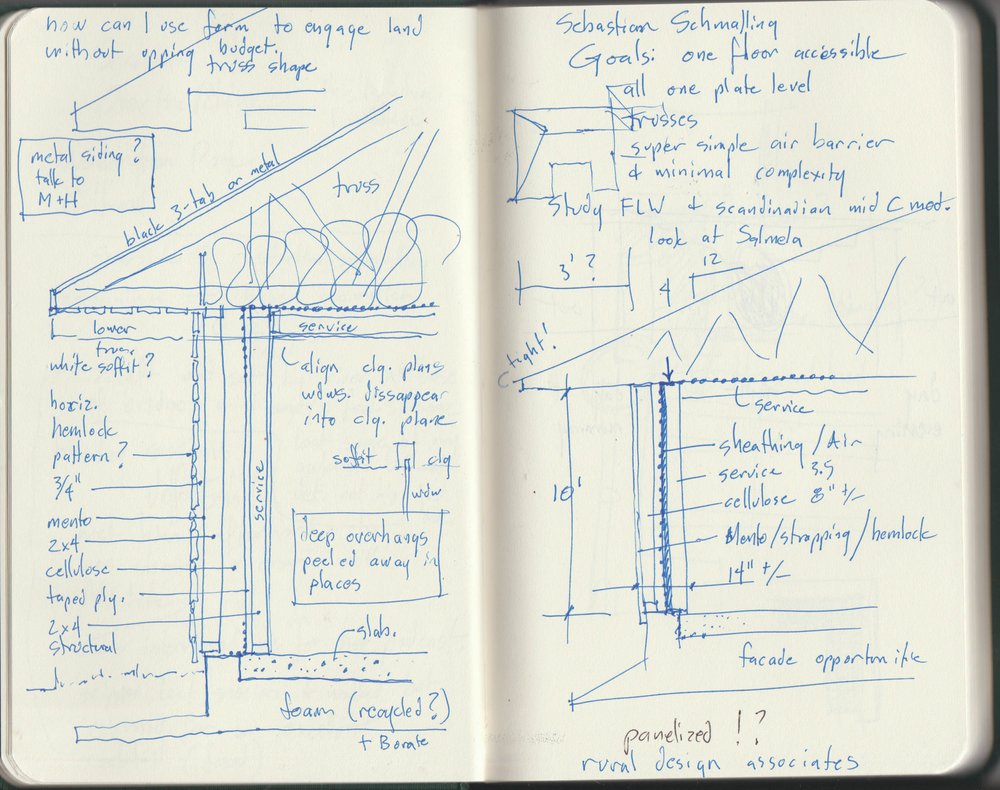 how can I use form to engage land
without upping budget.
truss shape
metal siding?
talk to
M+H
black 3-tab or metal
truss
?
lower
truss
service
white soffit?
horiz.
hemlock
pattern?
3/4"
mento
2x4
cellulose
taped ply.
2x4
structural
service
align clg. plans
wdws. dissappear
into clg. plane
soffit
clg
wdw
deep overhangs
peeled away in
places
slab.
foam (recycled?)
+ Borate
Sebastian Schmalling
Goals: one floor accessible
all one plate level
trusses
super simple air barrier
& minimal complexity
Study FLW & scandinadian mid C mod.
look at Salmela
3'?
12
4
tight!
service
10'
sheathing/Air
service 3.5
cellulose 8" +/-
Mento/strapping/hemlock
14" +/-
facade opportunitie
panelized !?
rural design associates